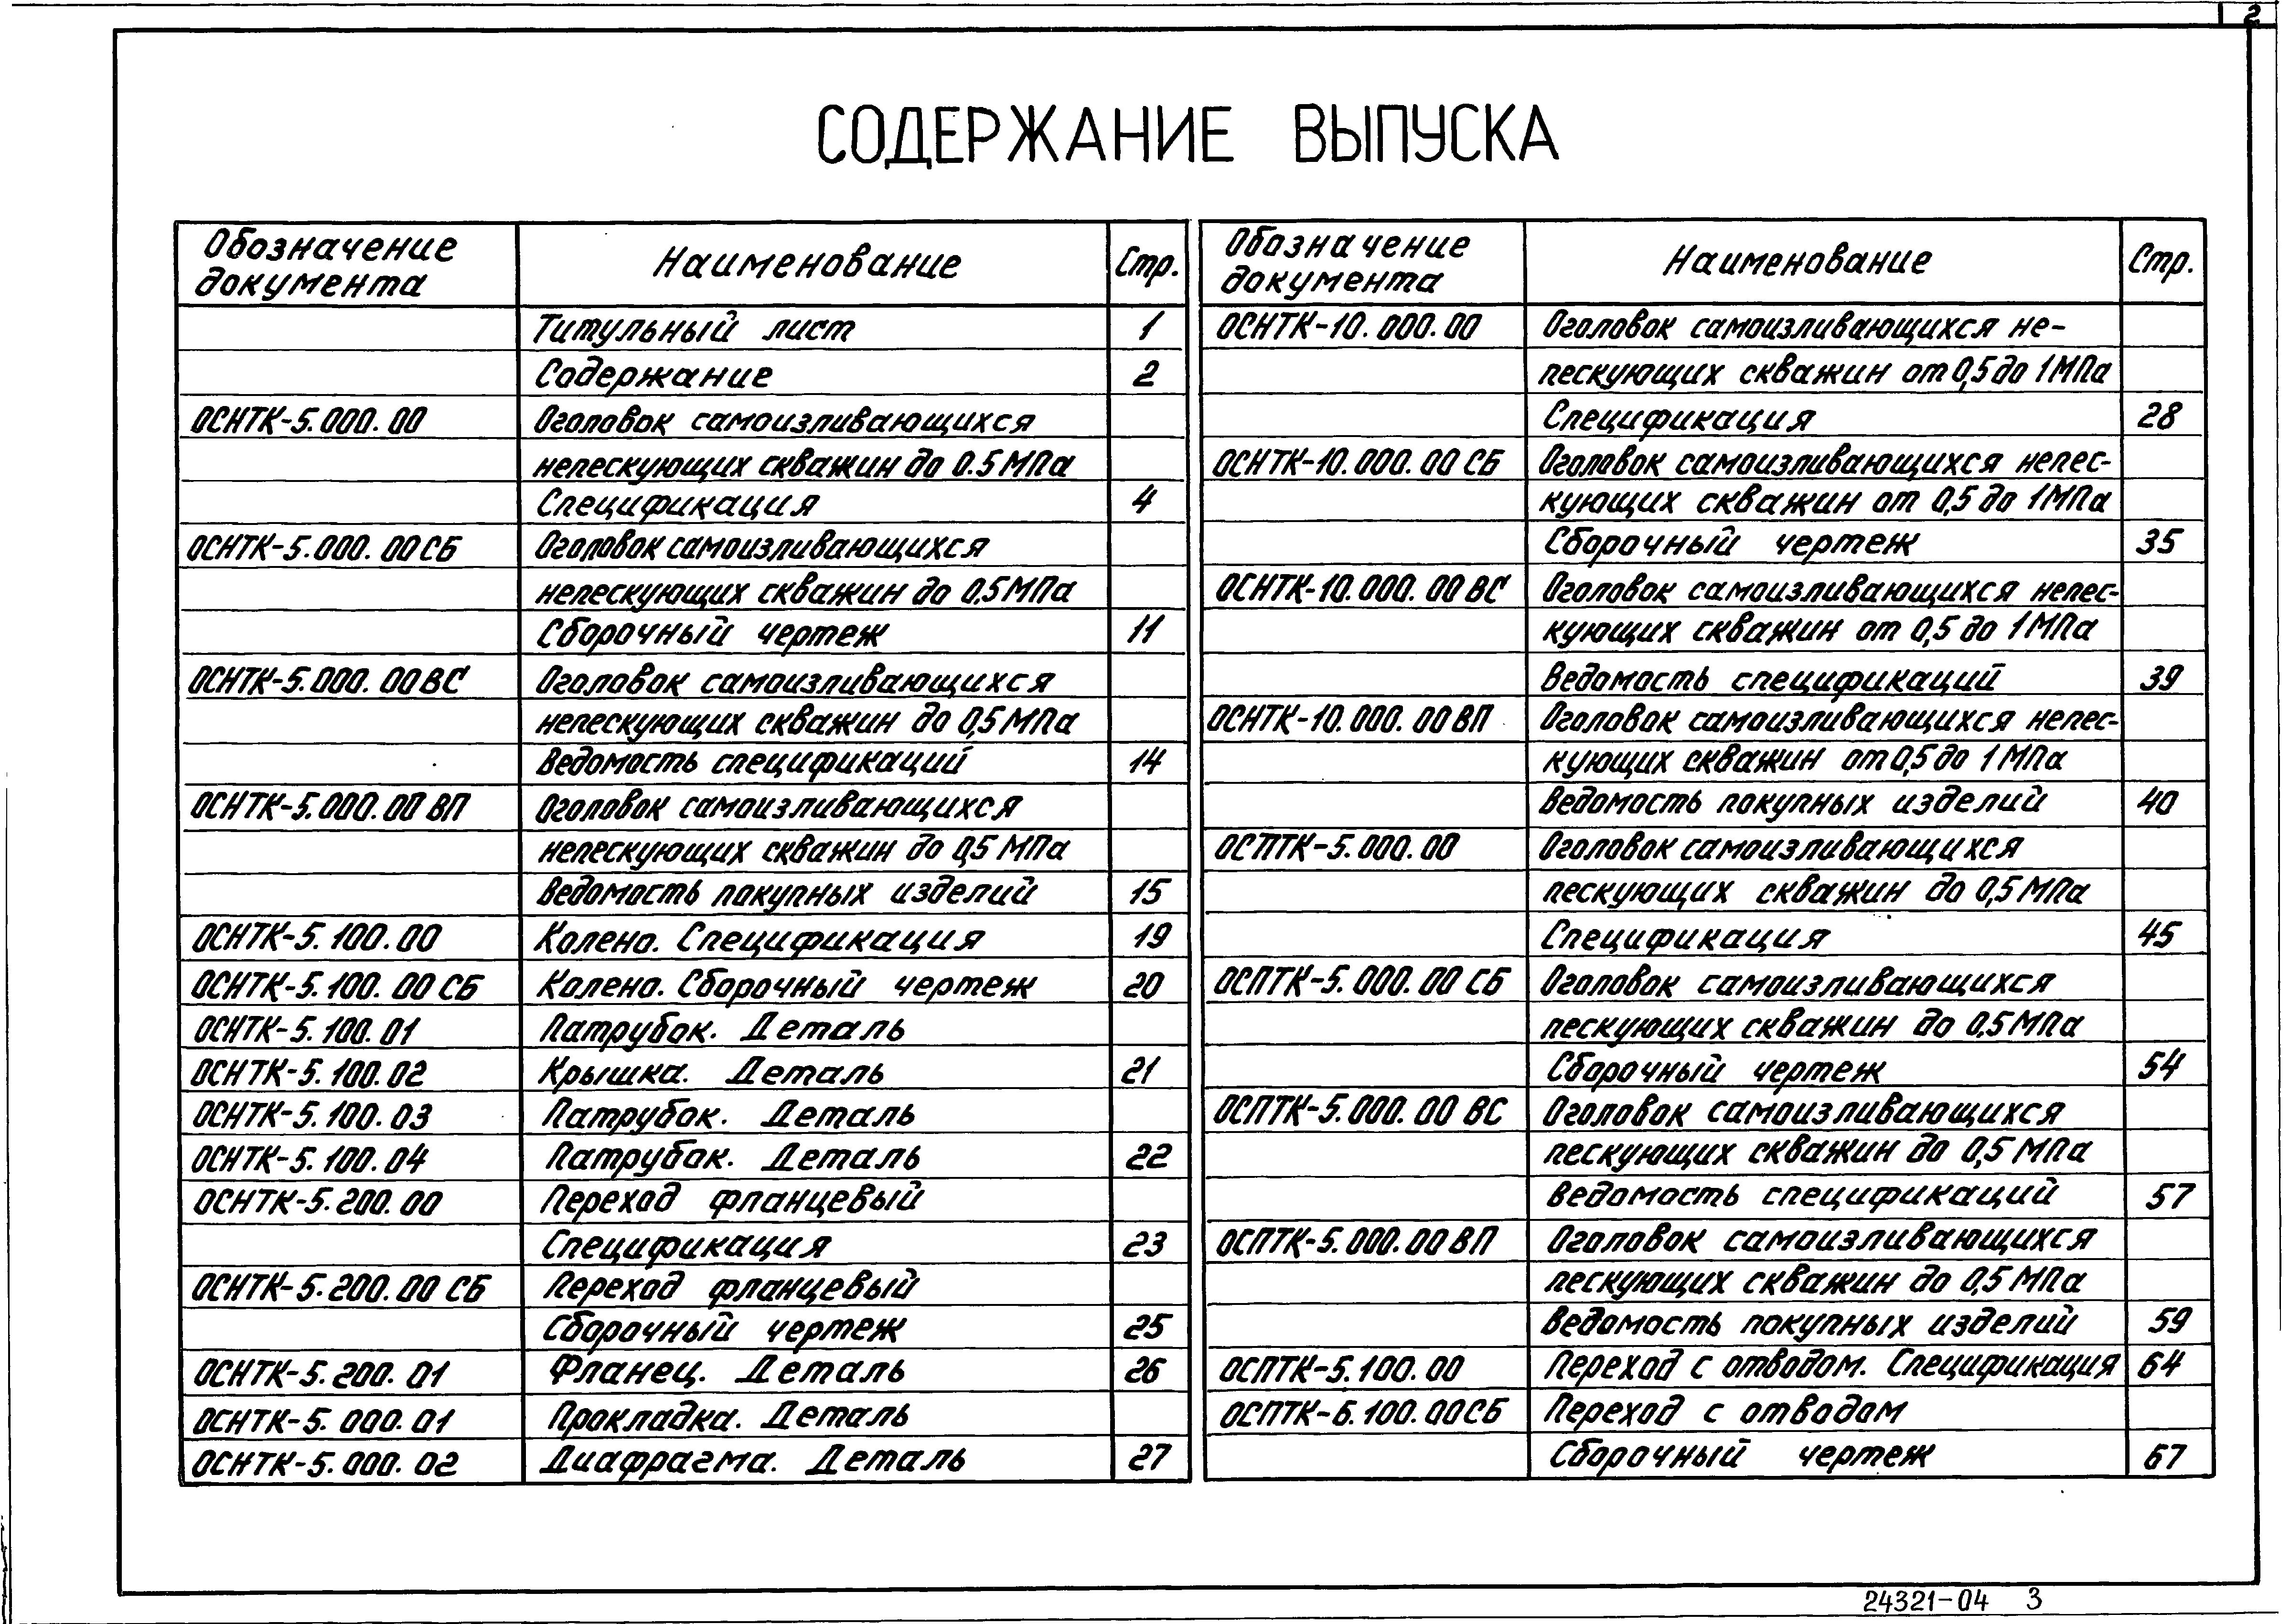 2
СОДЕРЖАНИЕ ВЫПУСКА
Обозначение документа Наименование Стр.
Титульный лист 1
Содержание 2
ОСНТК-5.000.00 Оголовок самоизливающихся
непескующих скважин до 0.5 МПа
Спецификация 4
ОСНТК-5.000.00 СБ Оголовок самоизливающихся
непескующих скважин до 0,5 МПа
Сборочный чертеж 11
ОСНТК-5.000.00 ВС Оголовок самоизливающихся
непескующих скважин до 0,5 МПа
Ведомость спецификаций 14
ОСНТК-5.000.00 ВП Оголовок самоизливающихся
непескующих скважин до 0,5 МПа
Ведомость покупных изделий 15
ОСНТК-5.100.00 Колено. Спецификация 19
ОСНТК-5.100.00 СБ Колено. Сборочный чертеж 20
ОСНТК-5.100.01 Патрубок. Деталь
ОСНТК-5.100.02 Крышка. Деталь 21
ОСНТК-5.100.03 Патрубок. Деталь
ОСНТК-5.100.04 Патрубок. Деталь 22
ОСНТК-5.200.00 Переход фланцевый
Спецификация 23
ОСНТК-5.200.00 СБ Переход фланцевый
Сборочный чертеж 25
ОСНТК-5.200.01 Фланец. Деталь 26
ОСНТК-5.000.01 Прокладка. Деталь
ОСНТК-5.000.02 Диафрагма. Деталь 27
Обозначение документа Наименование Стр.
ОСНТК-10.000.00 Оголовок самоизливающихся не-
пескующих скважин от 0,5 до 1 МПа
Спецификация 28
ОСНТК-10.000.00 СБ Оголовок самоизливающихся непес-
кующих скважин от 0,5 до 1 МПа
Сборочный чертеж 35
ОСНТК-10.000.00 ВС Оголовок самоизливающихся непес-
кующих скважин от 0,5 до 1 МПа
Ведомость спецификаций 39
ОСНТК-10.000.00 ВП Оголовок самоизливающихся непес-
кующих скважин от 0,5 до 1 МПа
Ведомость покупных изделий 40
ОСПТК-5.000.00 Оголовок самоизливающихся
пескующих скважин до 0,5 МПа
Спецификация 45
ОСПТК-5.000.00 СБ Оголовок самоизливающихся
пескующих скважин до 0,5 МПа
Сборочный чертеж 54
ОСПТК-5.000.00 ВС Оголовок самоизливающихся
пескующих скважин до 0,5 МПа
Ведомость спецификаций 57
ОСПТК-5.000.00 ВП Оголовок самоизливающихся
пескующих скважин до 0,5 МПа
Ведомость покупных изделий 59
ОСПТК-5.100.00 Переход с отводом. Спецификация 64
ОСПТК-Б.100.00 СБ Переход с отводом
Сборочный чертеж 67
24321-04 3